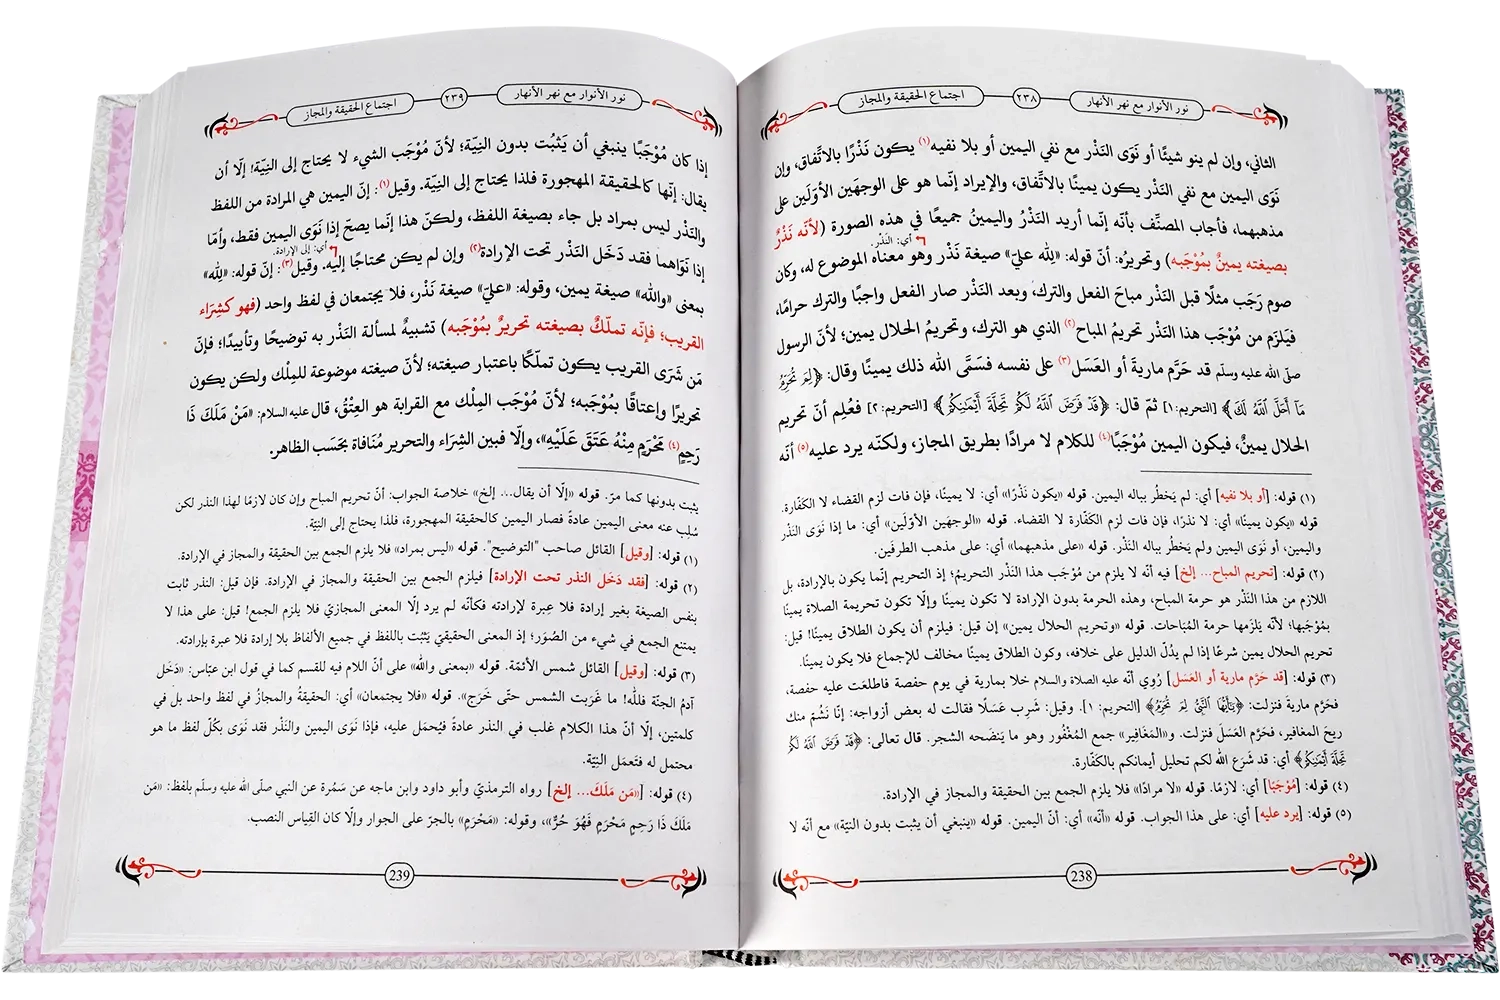 نور الأنوار مع نهر الأنهار
٢٣٨
اجتماع الحقيقة والمجاز
الثاني، وإن لم ينو شيئًا أو نَوَى النَذْر مع نفي اليمين أو بلا نفيه(١) يكون نَذْرًا بالاتّفاق، وإن
نَوَى اليمين مع نفي النَذْر يكون يمينًا بالاتّفاق، والإيراد إنّما هو على الوجهَين الأوّلَين على
مذهبهما، فأجاب المصنّف بأنه إنّما أريد النَذْرُ واليمينُ جميعًا في هذه الصورة (لأنّه نَذْرٌ
أي: النَذْر.
بصيغته يمينٌ بمُوْجَبه) وتحريرُه: أنّ قوله: «لِله عليّ» صيغة نَذْر وهو معناه الموضوع له، وكان
صوم رَجَب مثلًا قبل النَذْر مباحَ الفعل والترك، وبعد النَذْر صار الفعل واجبًا والترك حرامًا،
فيَلزَم من مُوْجَب هذا النَذْر تحريمُ المباح(٢) الذي هو الترك، وتحريمُ الحلال يمين؛ لأنّ الرسول
صلّى الله عليه وسلّم قد حَرَّم مارية أو العَسَل(٣) على نفسه فسَمَّى الله ذلك يمينًا وقال: ﴿لِمَ تُحَرِّمُ
مَآ أَحَلَّ ٱللَّهُ لَكَ﴾ [التحريم:١] ثمّ قال: ﴿قَدْ فَرَضَ ٱللَّهُ لَكُمْ تَحِلَّةَ أَيْمَٰنِكُمْ﴾ [التحريم:٢] فعُلِم أنّ تحريم
الحلال يمينٌ، فيكون اليمين مُوْجَبًا(٤) للكلام لا مرادًا بطريق المجاز، ولكنّه يرد عليه(٥) أنّه
(١) قوله: [أو بلا نفيه] أي: لم يَخطُر بباله اليمين. قوله «يكون نَذْرًا» أي: لا يمينًا، فإن فات لزم القضاء لا الكفّارة.
قوله «يكون يمينًا» أي: لا نذرًا، فإن فات لزم الكفّارة لا القضاء. قوله «الوجهَين الأوّلَين» أي: ما إذا نَوَى النَذْر
واليمين، أو نَوَى اليمين ولم يَخطُر بباله النَذْر. قوله «على مذهبهما» أي: على مذهب الطرفَين.
(٢) قوله: [تحريم المباح... إلخ] فيه أنّه لا يلزم من مُوْجَب هذا النَذْر التحريمُ؛ إذ التحريم إنّما يكون بالإرادة، بل
اللازم من هذا النَذْر هو حرمة المباح، وهذه الحرمة بدون الإرادة لا تكون يمينًا وإلّا تكون تحريمة الصلاة يمينًا
بمُوْجَبها؛ لأنّه يَلزَمها حرمة المُبَاحات. قوله «وتحريم الحلال يمين» إن قيل: فيلزم أن يكون الطلاق يمينًا! قيل:
تحريم الحلال يمين شرعًا إذا لم يدُلّ الدليل على خلافه، وكون الطلاق يمينًا مخالف للإجماع فلا يكون يمينًا.
(٣) قوله: [قد حَرَّم مارية أو العَسَل] رُوِي أنّه عليه الصلاة والسلام خلا بمارية في يوم حفصة فاطلعَت عليه حفصة،
فحَرَّم مارية فنزلت: ﴿يَٰٓأَيُّهَا ٱلنَّبِيُّ لِمَ تُحَرِّمُ﴾ [التحريم: ١]. وقيل: شَرِب عَسَلًا فقالت له بعض أزواجه: إنّا نَشُمّ منك
ريحَ المغافير، فحَرَّم العَسَلَ فنزلت. و«المَغَافِير» جمع المُغْفُور وهو ما يَنضَحه الشجر. قال تعالى: ﴿قَدْ فَرَضَ ٱللَّهُ لَكُمْ
تَحِلَّةَ أَيْمَٰنِكُمْ﴾ أي: قد شَرَع الله لكم تحليل أيمانكم بالكفّارة.
(٤) قوله: [مُوْجَبًا] أي: لازمًا. قوله «لا مرادًا» فلا يلزم الجمع بين الحقيقة والمجاز في الإرادة.
(٥) قوله: [يرد عليه] أي: على هذا الجواب. قوله «أنّه» أي: أنّ اليمين. قوله «ينبغي أن يثبت بدون النيّة» مع أنّه لا
238
نور الأنوار مع نهر الأنهار
٢٣٩
اجتماع الحقيقة والمجاز
إذا كان مُوْجَبًا ينبغي أن يَثبُت بدون النِيّة؛ لأنّ مُوْجَب الشيء لا يحتاج إلى النِيّة! إلّا أن
يقال: إنّها كالحقيقة المهجورة فلذا يحتاج إلى النِيّة. وقيل(١): إنّ اليمين هي المرادة من اللفظ
والنَذْر ليس بمراد بل جاء بصيغة اللفظ، ولكنّ هذا إنّما يصحّ إذا نَوَى اليمين فقط، وأمّا
إذا نَوَاهما فقد دَخَل النَذْر تحت الإرادة(٢) وإن لم يكن محتاجًا إليه. وقيل(٣): إنّ قوله: «لِله»
أي: إلى الإرادة.
بمعنى «والله» صيغة يمين، وقوله: «عليّ» صيغة نَذْر، فلا يجتمعان في لفظ واحد (فهو كشِرَاء
القريب؛ فإنّه تملّكٌ بصيغته تحريرٌ بمُوْجَبه) تشبيهٌ لمسألة النَذْر به توضيحًا وتأييدًا؛ فإنّ
مَن شَرَى القريب يكون تملّكًا باعتبار صيغته؛ لأنّ صيغته موضوعة للمِلْك ولكن يكون
تحريرًا وإعتاقًا بمُوْجَبه؛ لأنّ مُوْجَب المِلْك مع القرابة هو العِتْقُ، قال عليه السلام: «مَنْ مَلَكَ ذَا
رَحِمٍ(٤) مَحْرَمٍ مِنْهُ عَتَقَ عَلَيْهِ»، وإلّا فبين الشِرَاء والتحرير مُنَافاة بحَسَب الظاهر.
يثبت بدونها كما مرّ. قوله «إلّا أن يقال... إلخ» خلاصة الجواب: أنّ تحريم المباح وإن كان لازمًا لهذا النذر لكن
سُلِب عنه معنى اليمين عادةً فصار اليمين كالحقيقة المهجورة، فلذا يحتاج إلى النِيّة.
(١) قوله: [وقيل] القائل صاحب "التوضيح". قوله «ليس بمراد» فلا يلزم الجمع بين الحقيقة والمجاز في الإرادة.
(٢) قوله: [فقد دَخَل النذر تحت الإرادة] فيلزم الجمع بين الحقيقة والمجاز في الإرادة. فإن قيل: النذر ثابت
بنفس الصيغة بغير إرادة فلا عِبرة لإرادته فكأنّه لم يرد إلّا المعنى المجازيّ فلا يلزم الجمع! قيل: على هذا لا
يمتنع الجمع في شيء من الصُوَر؛ إذ المعنى الحقيقيّ يَثبُت باللفظ في جميع الألفاظ بلا إرادة فلا عبرة بإرادته.
(٣) قوله: [وقيل] القائل شمس الأئمّة. قوله «بمعنى والله» على أنّ اللام فيه للقسم كما في قول ابن عبّاس: «دَخَل
آدمُ الجنّة فلله! ما غَرَبت الشمس حتّى خَرَج». قوله «فلا يجتمعان» أي: الحقيقةُ والمجازُ في لفظ واحد بل في
كلمتين، إلّا أنّ هذا الكلام غلب في النذر عادةً فيُحمَل عليه، فإذا نَوَى اليمين والنَذْر فقد نَوَى بكُلّ لفظ ما هو
محتمل له فتَعمَل النِيّة.
(٤) قوله: [«مَن مَلَكَ... إلخ] رواه الترمذيّ وأبو داود وابن ماجه عن سَمُرة عن النبي صلّى الله عليه وسلّم بلفظ: «مَن
مَلَكَ ذَا رَحِمٍ مَحْرَمٍ فَهُوَ حُرٌّ»، وقوله: «مَحْرَمٍ» بالجرّ على الجوار وإلّا كان القِياس النصب.
239